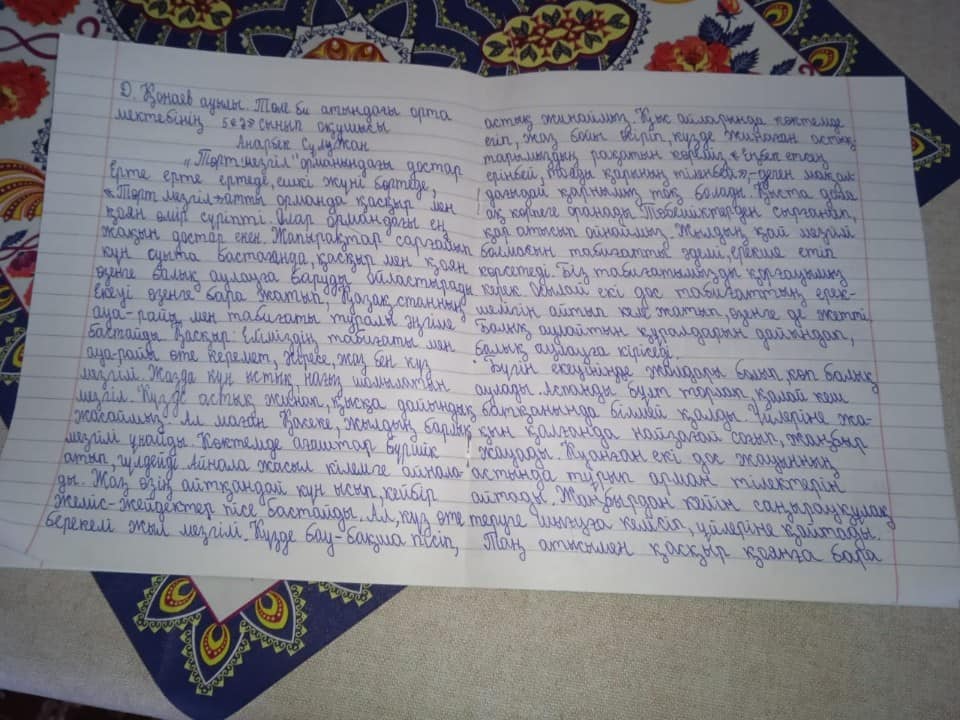 Д. Қонаев ауылы. Төле би атындағы орта
мектебінің 5 «З» сынып оқушысы
Анарбек Сұлужан
„Төрт мезгіл" орманындағы достар
Ерте ерте ертеде, ешкі жүні бөртеде,
«Төрт мезгіл» атты орманда қасқыр мен
қоян өмір сүріпті. Олар ормандағы ең
жақын достар екен. Жапырақтар сарғайып
күн суыта бастағанда, қасқыр мен қоян
өзенге балық аулауға баруды ойластырады
екеуі өзенге бара жатып, Қазақстанның
ауа-райы мен табиғаты туралы әңгіме
бастайды. Қасқыр: Еліміздің табиғаты мен
ауа-райы өте керемет, әсіресе, жаз бен күз
мезгілі. Жазда күн ыстық, нағыз шомылатын
мезгіл. Күзде астық жинап, қысқа дайындық
жасаймыз. Ал маған Қасеке, жылдың барлық
мезгілі ұнайды. Көктемде ағаштар бүршік
атып, гүлдейді. Айнала жасыл кілемге айнала-
ды. Жаз өзің айтқандай күн ысып, кейбір
жеміс-жейдектер пісе бастайды. Ал, күз өте
берекелі жыл мезгілі. Күзде бау-бақша пісіп,
астық жинаймыз. Қыс айларында көктемде
егіп, жаз бойы өсіріп, күзде жинаған астық
тарымыздың рахатын көреміз. «Еңбек етсең
ерінбей, тояды қарның тіленбей»,-деген мақал-
дағыдай қарнымыз тоқ болады. Қыста дала
ақ көрпеге оранады. Төбешіктерден сырғанап,
қар атысып ойнаймыз. Жылдың қай мезгілі
болмасын табиғатты әдемі, ерекше етіп
көрсетеді. Біз табиғатымызды қорғауымыз
керек. Осылай екі дос табиғаттың ерек-
шелігін айтып келе жатып, өзенге де жетті.
Балық аулайтын құралдарын дайындап,
балық аулауға кіріседі.
Бүгін екеуінінде жолдары болып, көп балық
аулады. Аспанды бұлт торлап, қалай кеш
батқанында білмей қалды. Үйлеріне жа-
қын қалғанда найзағай соғып, жаңбыр
жауады. Қуанған екі дос жауынның
астында тұрып арман тілектерін
айтады. Жаңбырдан кейін саңырауқұлақ
теруге шығуға келісіп, үйлеріне қайтады.
Таң атысымен қасқыр қоянға бара